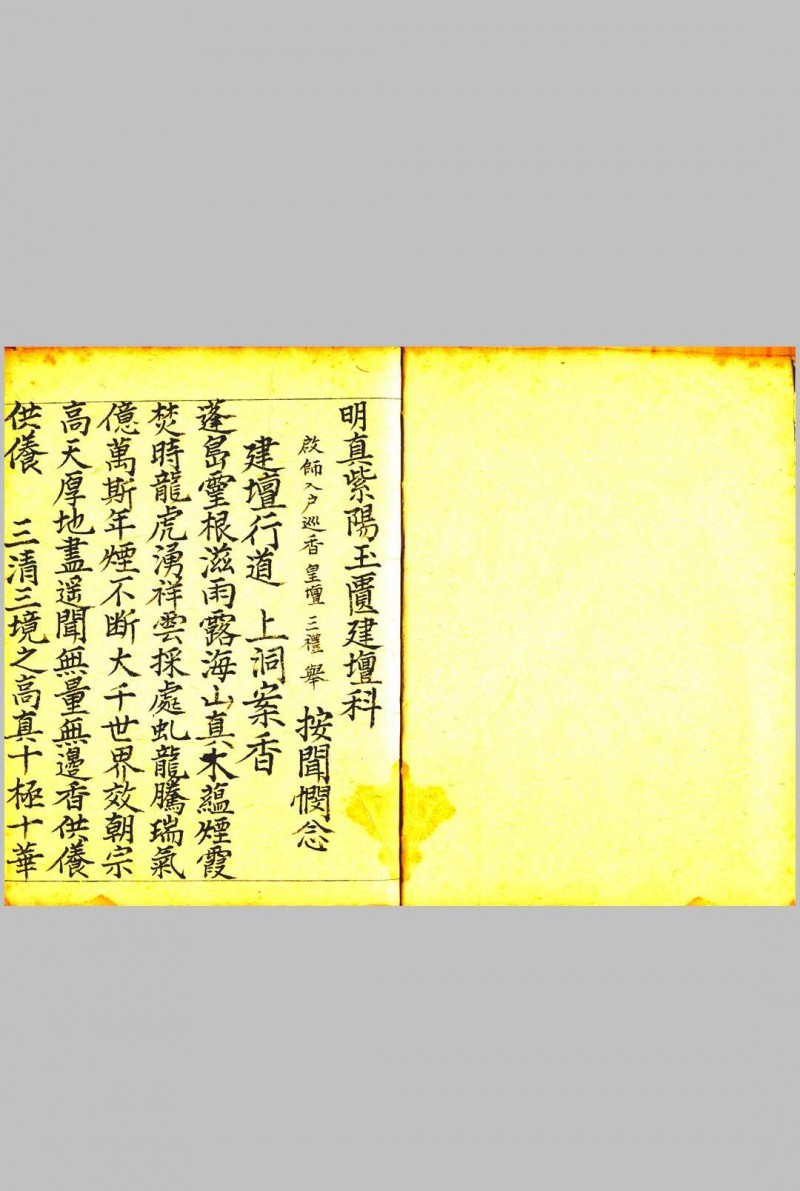 明真紫陽玉匱建壇科
啟師入户巡香皇壇三禮舉 按聞憫念
建壇行道 上洞案香
蓬島靈根滋雨露海山真木蘊煙霞
焚時龍虎湧祥雲採處虬龍騰瑞氣
億萬斯年煙不断大千世界效朝宗
高天厚地盡遥聞無量無邊香供養
供養 三清三境之高真十極十華